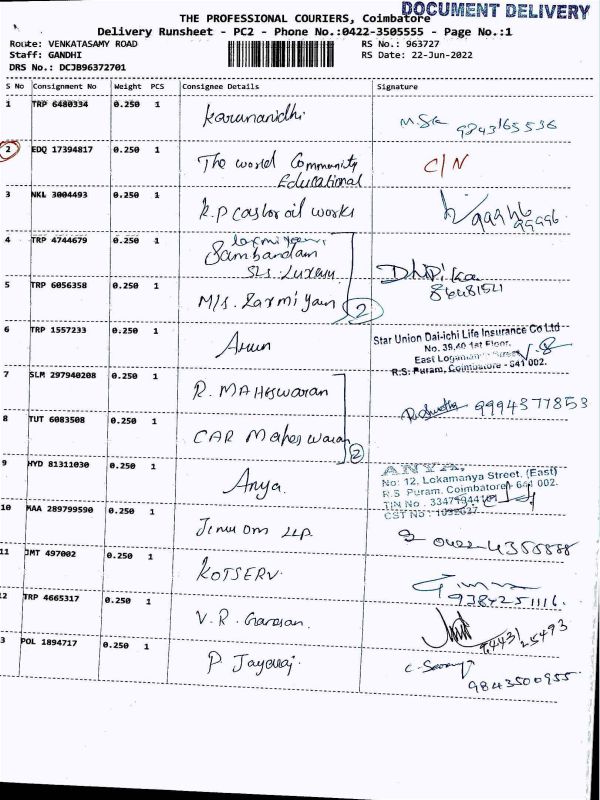 DOCUMENT DELIVERY
THE PROFESSIONAL COURIERS, Coimbatore
Delivery Runsheet - PC2 - Phone No.:0422-3505555 - Page No.:1
Route: VENKATASAMY ROAD RS No.: 963727
Staff: GANDHI RS Date: 22-Jun-2022
DRS No.: DCJB96372701
S No Consignment No Weight PCS Consignee Details Signature
1 TRP 6480334 0.250 1 Karunanidhi
M.SK 9843165536
2 EDQ 17394817 0.250 1 The world Community C/N
Educational
3 NKL 3004493 0.250 1 K.P castor oil works
99996
4 TRP 4744679 0.250 1 laxmi yam
Sambandam
5 TRP 6056358 0.250 1 M/s. Laxmi yam 2
6 TRP 1557233 0.250 1 Arun
Star Union Dai-ichi Life Insurance Co Ltd
No. 39,40 1st Floor,
East Street
R.S. Puram, Coimbatore - 641 002.
7 SLM 297940208 0.250 1 R. MAHESWARAN
9994377853
8 TUT 6083508 0.250 1 CAR Maheswaran 2
9 HYD 81311030 0.250 1 Anya.
ANYA,
No: 12, Lokamanya Street, (East)
R.S Puram, Coimbatore - 641 002.
TIN No
CST No
10 MAA 289799590 0.250 1 LLP
11 JMT 497002 0.250 1 KOTSERV.
9384251116.
2 TRP 4665317 0.250 1 V.R.
94431 25493
3 POL 1894717 0.250 1 P Jayaraj
9843500955